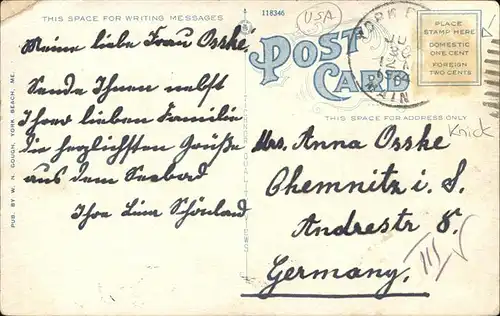 THIS SPACE FOR WRITING MESSAGES
118346
USA
POST CARD
PLACE
STAMP HERE
DOMESTIC
ONE CENT
FOREIGN
TWO CENTS
YORK
JU
30
12 M
MAIN
Meine liebe Frau Osske,
Sende Ihnen nebst
Ihrer lieben Familie
die herzlichsten Grüße
aus dem Seebad
Ihre Lina Schönland
THIS SPACE FOR ADDRESS ONLY
Knick
Mrs. Anna Osske
Chemnitz i. S.
Andrestr 8.
Germany.
III
PUB. BY W. N. GOUGH, YORK BEACH, ME.